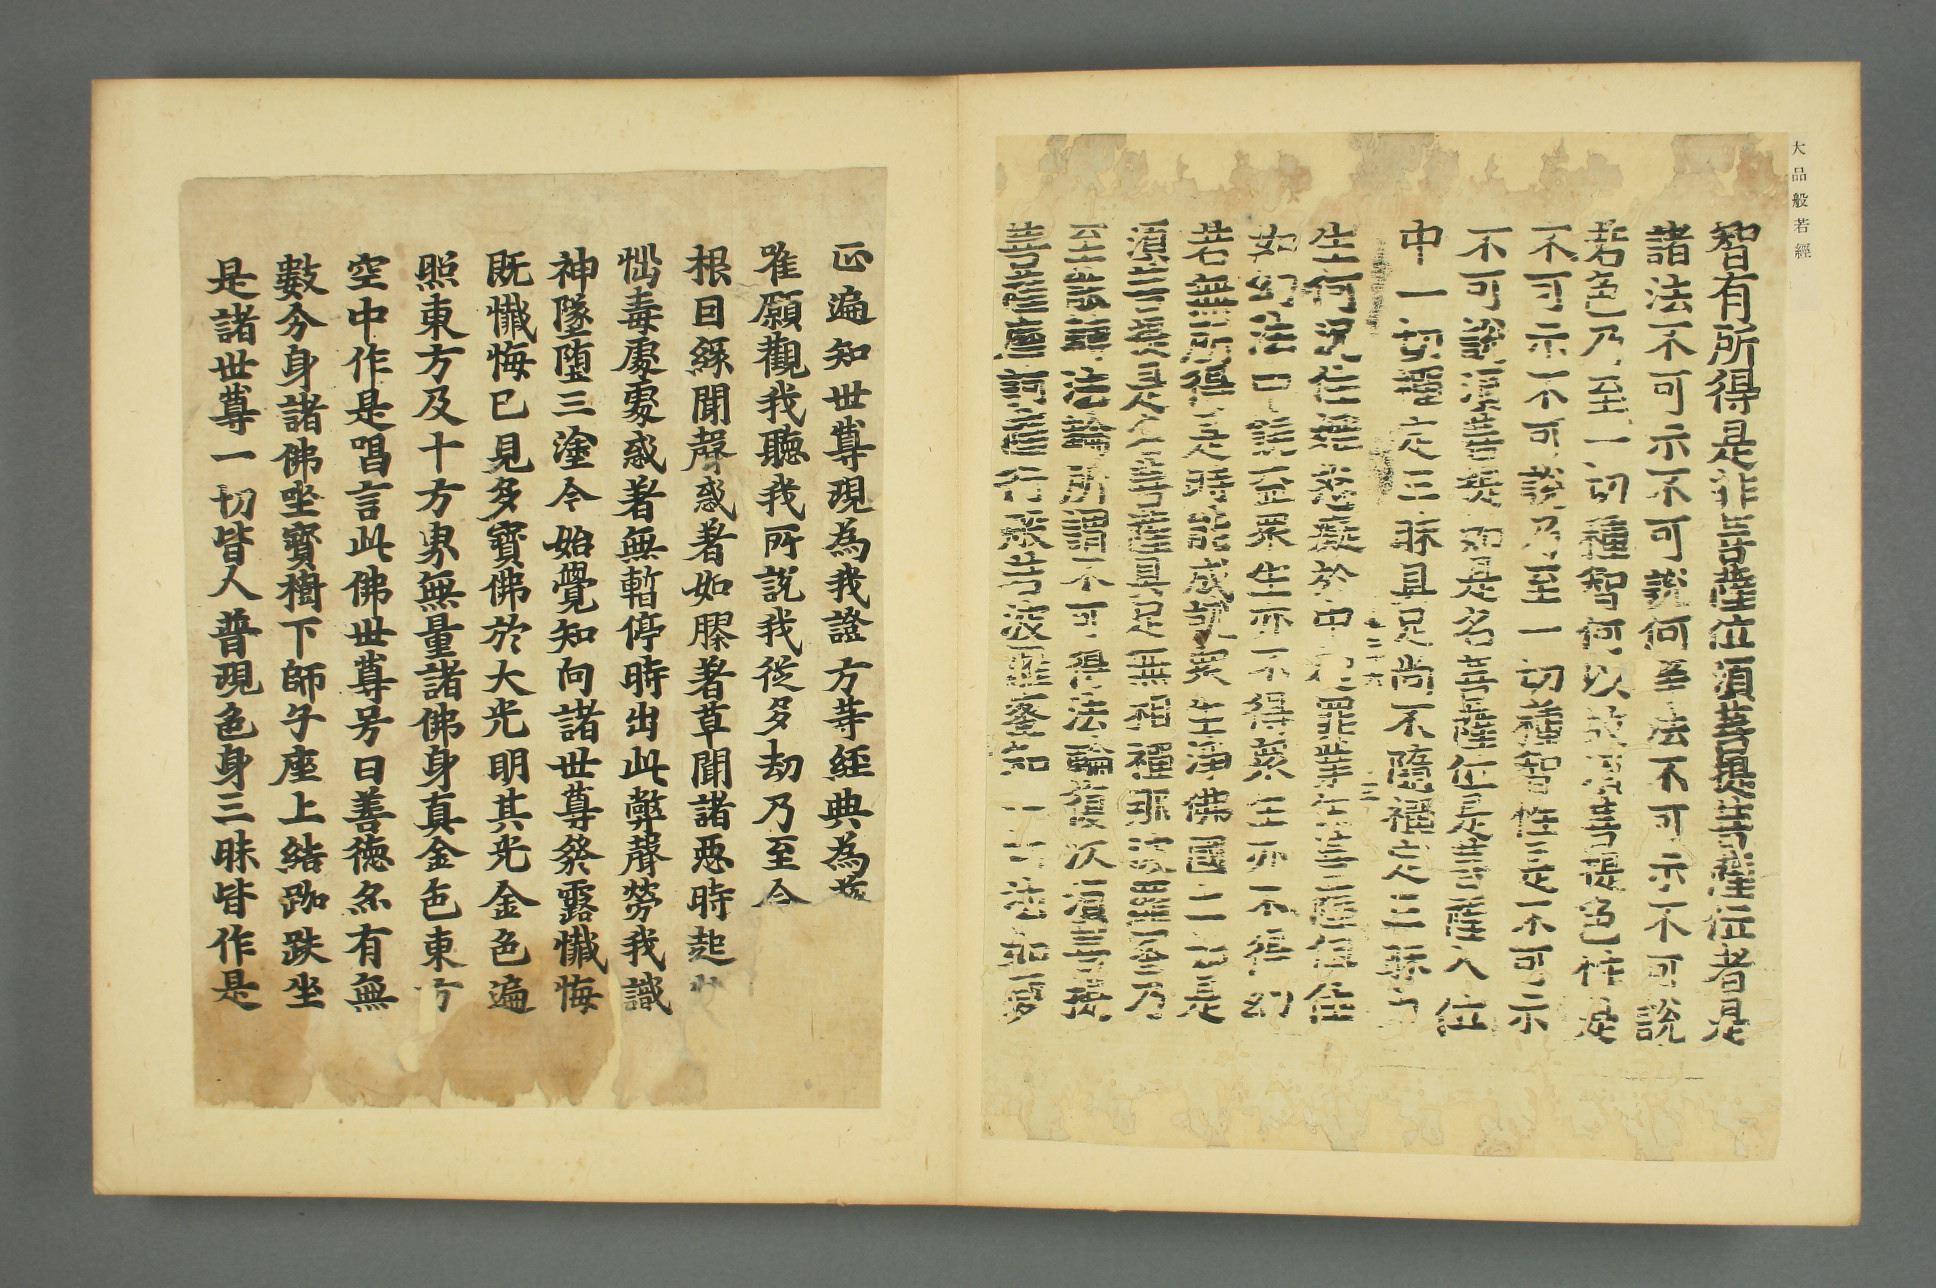 大品般若經
智有所得是非菩薩位須菩提是菩薩位者是
諸法不可示不可說何等法不可示不可說
若色乃至一切種智何以故須菩提色性是
不可示不可說乃至一切種智性是不可示
不可說須菩提如是名菩薩位是菩薩入位
中一切禪定三昧具足尚不隨禪定三昧力
生何況住婬怒癡於中起罪業生菩薩但住
如幻法中饒益眾生亦不得眾生亦不得幻
若無所得是時能成就眾生淨佛國土是
須菩提是名菩薩具足無相禪那波羅蜜乃
至能轉法輪所謂不可得法輪復次須菩提
菩薩摩訶薩行般若波羅蜜知一切法如夢
正遍知世尊現為我證方等經典為
唯願觀我聽我所說我從多劫乃至今
根因緣聞聲惑著如膠著草聞諸惡時起
惱毒處處惑著無暫停時出此弊聲勞我識
神墜墮三塗今始覺知向諸世尊發露懺悔
既懺悔已見多寶佛於大光明其光金色遍
照東方及十方界無量諸佛身真金色東方
空中作是唱言此佛世尊号曰善德亦有無
數分身諸佛坐寶樹下師子座上結跏趺坐
是諸世尊一切皆人普現色身三昧皆作是